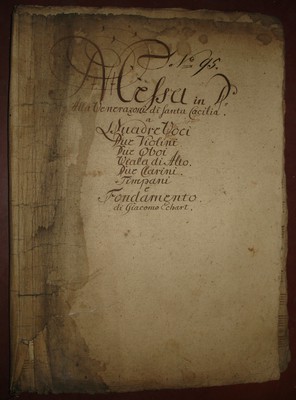 No: 95.
Messa in D.
Alla Venerazone di Santa Cacilia
a
Quadre Voci
Due Violini
Due Oboi
Viola di Alto.
Due Clarini
Timpani
e
Fondamento.
di Giacomo Echart.